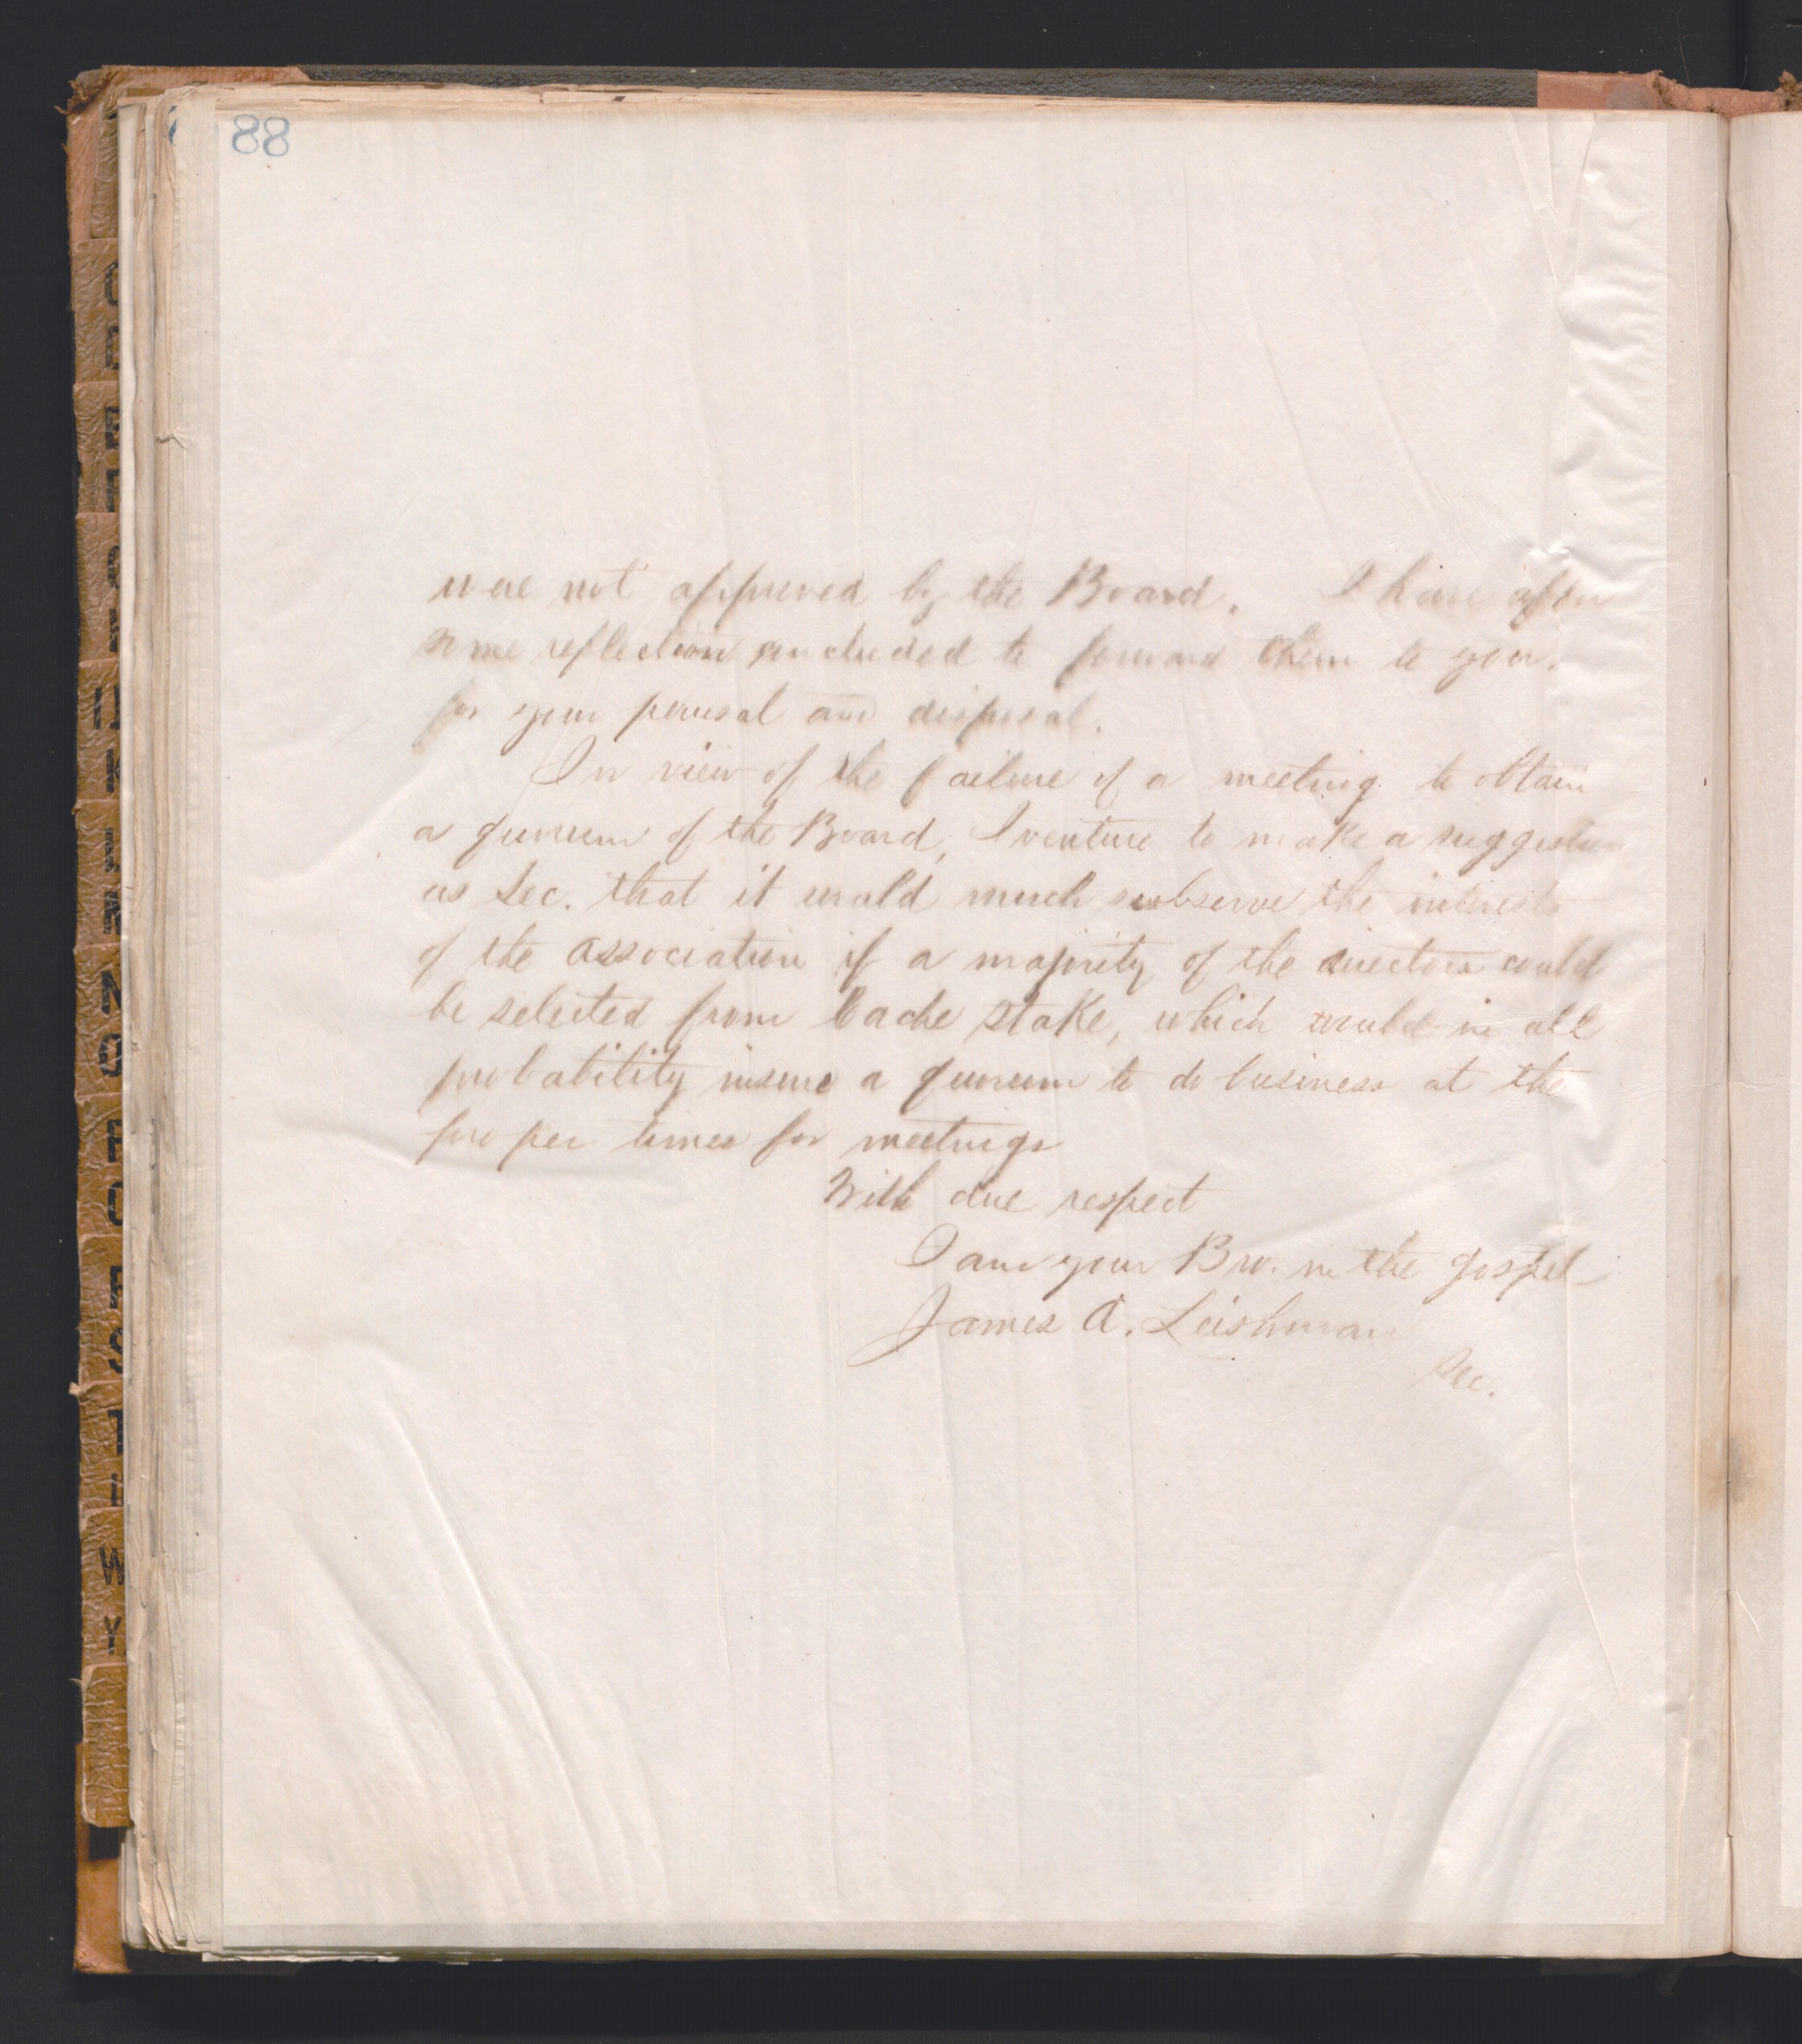 88
were not approved by the Board. I have after
some reflection concluded to forward them to you.
for your perusal and disposal.
In view of the failure of a meeting to obtain
a quorum of the Board, I venture to make a suggestion
as Sec. that it would much subserve the interests
of the association if a majority of the directors could
be selected from Cache Stake, which would in all
probability insure a quorum to do business at the
proper times for meetings
With due respect
I am your Bro. in the gospel
James A. Leishman
Sec.
O
K
N
O
S
W
Y